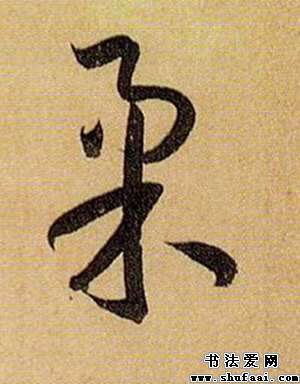 柔
书法爱网
www.shufaai.com